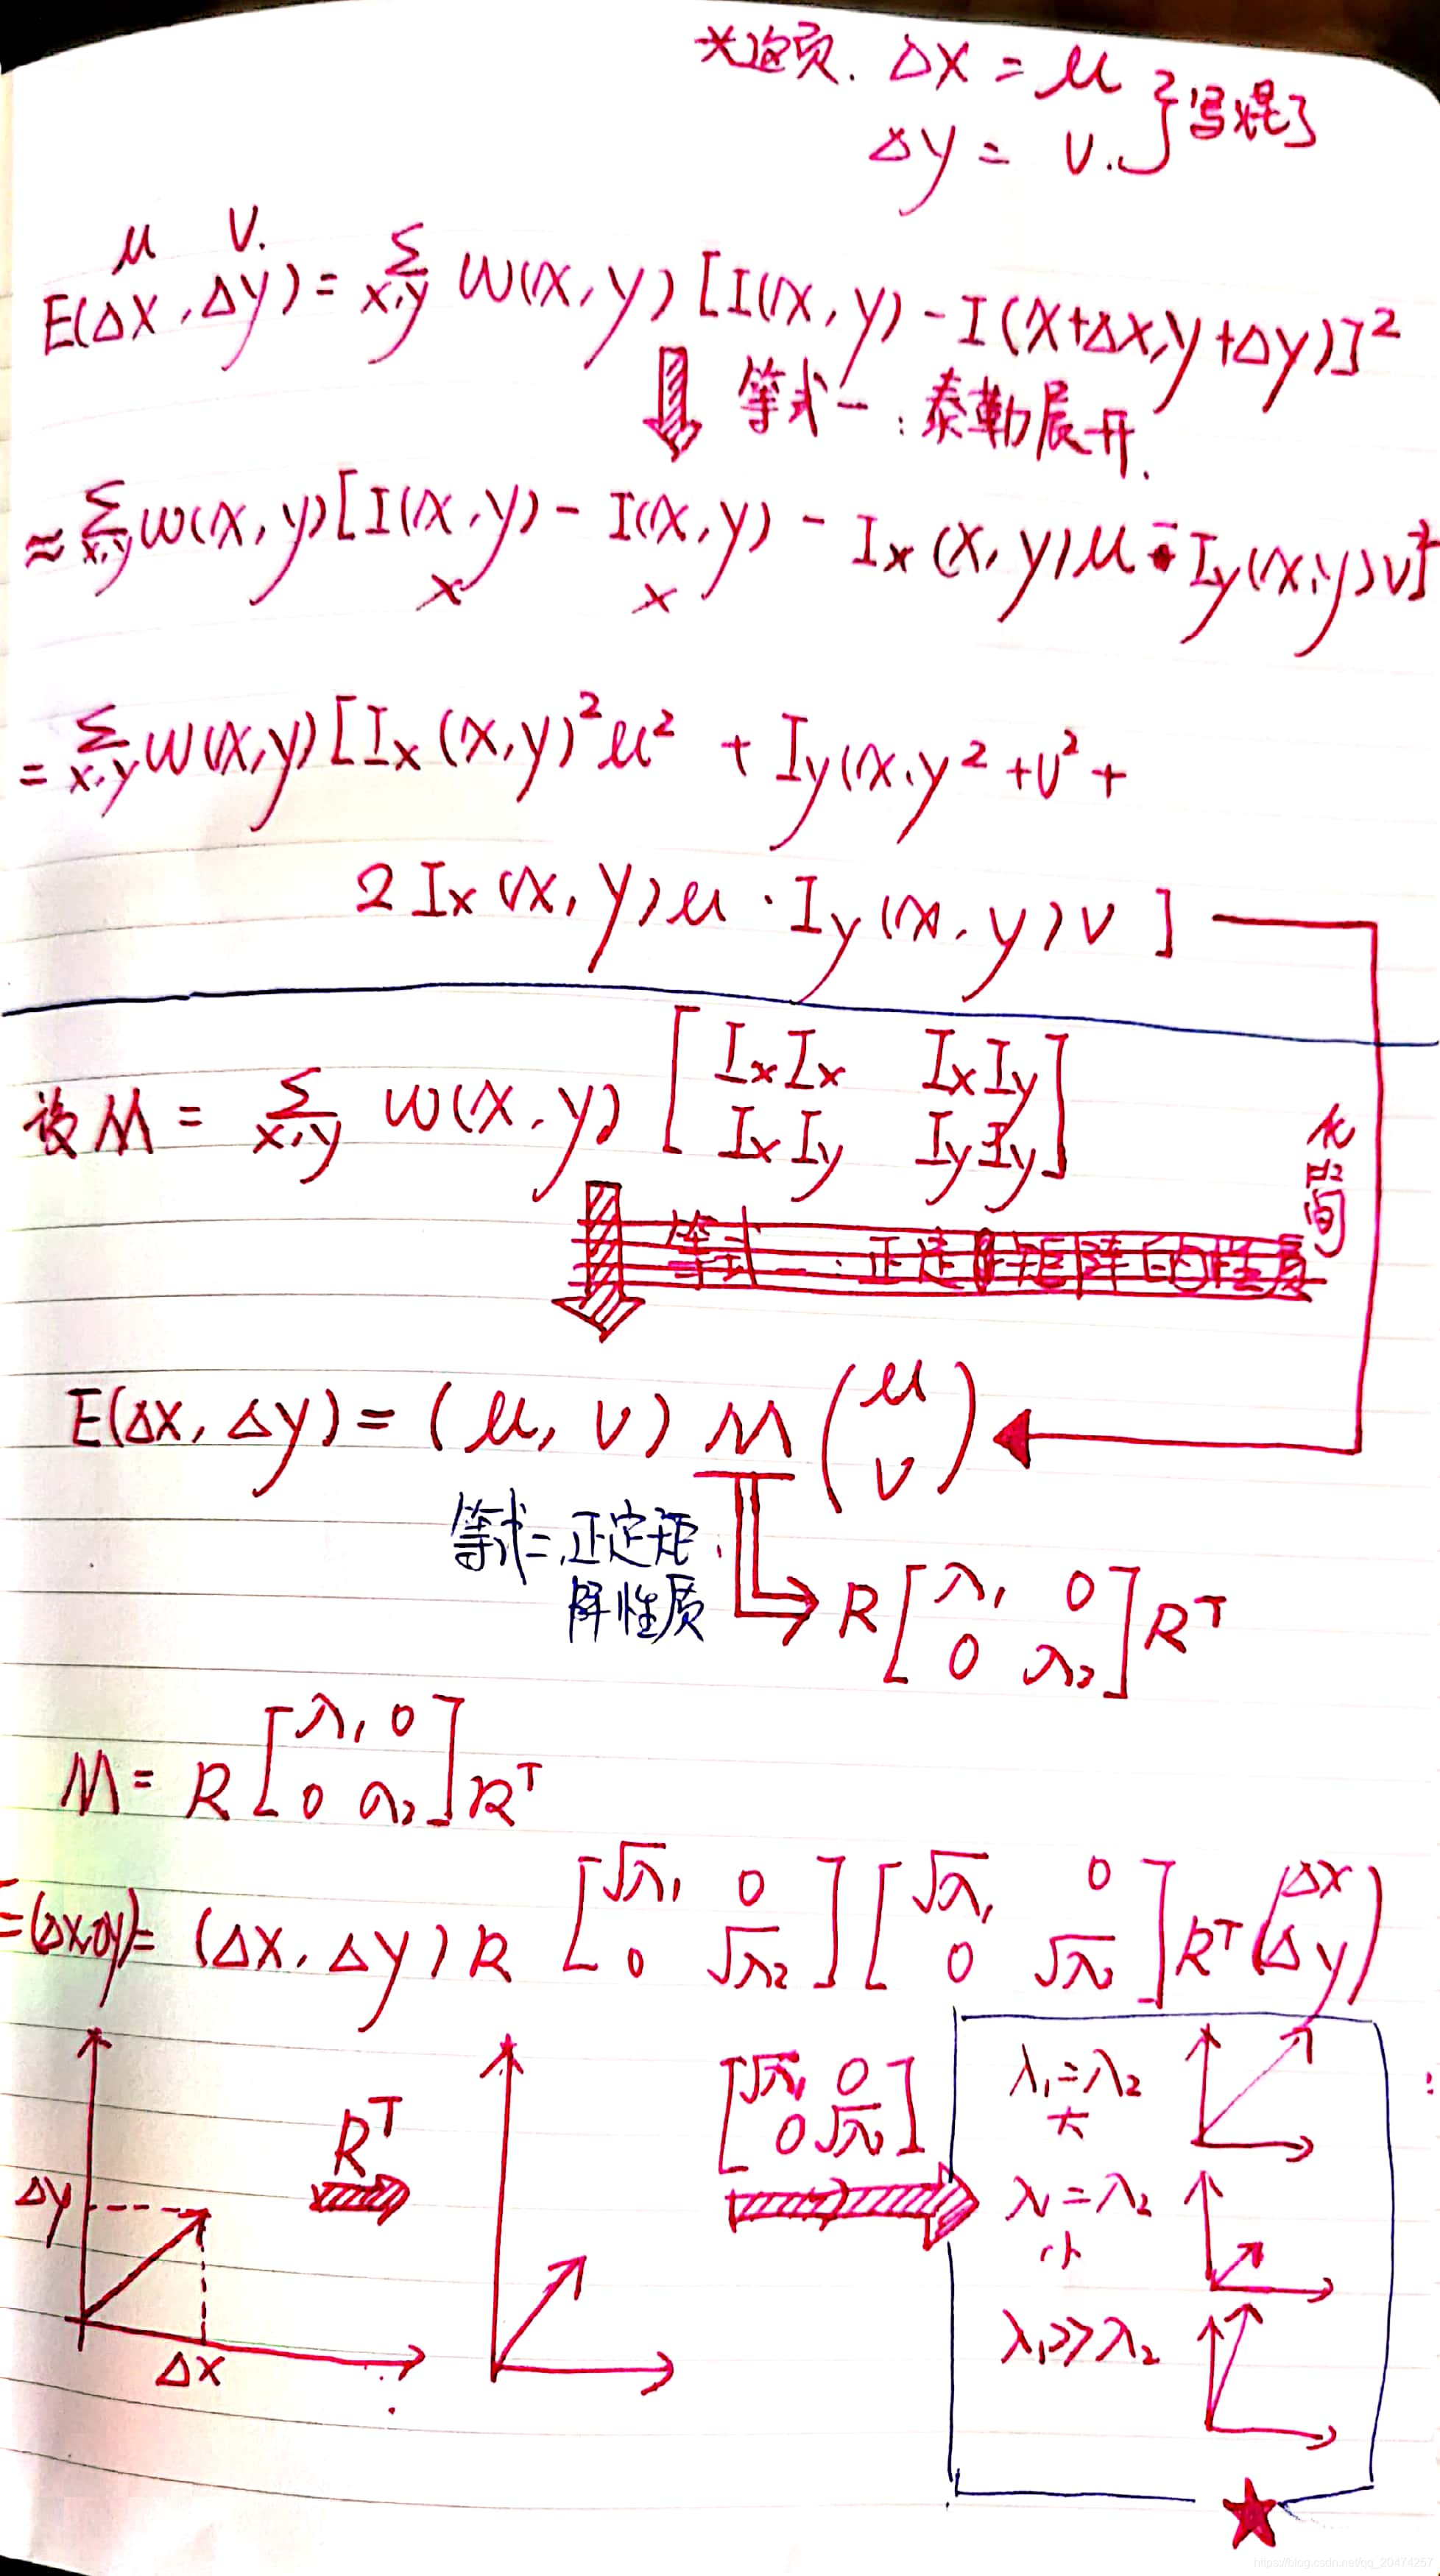 *这页. Δx = μ } 写混了
Δy = v.
μ v.
E(Δx, Δy) = Σx,y w(x, y) [I(x, y) - I(x+Δx, y+Δy)]²
等式一: 泰勒展开.
≈ Σx,y w(x, y) [I(x, y) - I(x, y) - Ix(x, y)μ - Iy(x, y)v]²
× ×
= Σx,y w(x,y) [Ix(x,y)²μ² + Iy(x,y² + v² +
2Ix(x, y)μ · Iy(x, y)v ]
设 M = Σx,y w(x, y) [ IxIx IxIy
IxIy IyIy ]
化简
等式二: 正定矩阵的性质
E(Δx, Δy) = (μ, v) M (μ
v)
等式二: 正定矩
阵性质
R [ λ1 0
0 λ2 ] Rᵀ
M = R [ λ1 0
0 λ2 ] Rᵀ
E(Δx,Δy) = (Δx, Δy) R [ √λ1 0
0 √λ2 ] [ √λ1 0
0 √λ2 ] Rᵀ (Δx
Δy)
Rᵀ
[ √λ1 0
0 √λ2 ]
λ1 = λ2
大
Δy
λ1 = λ2
小
λ1 >> λ2
Δx
https://blog.csdn.net/qq_20474257